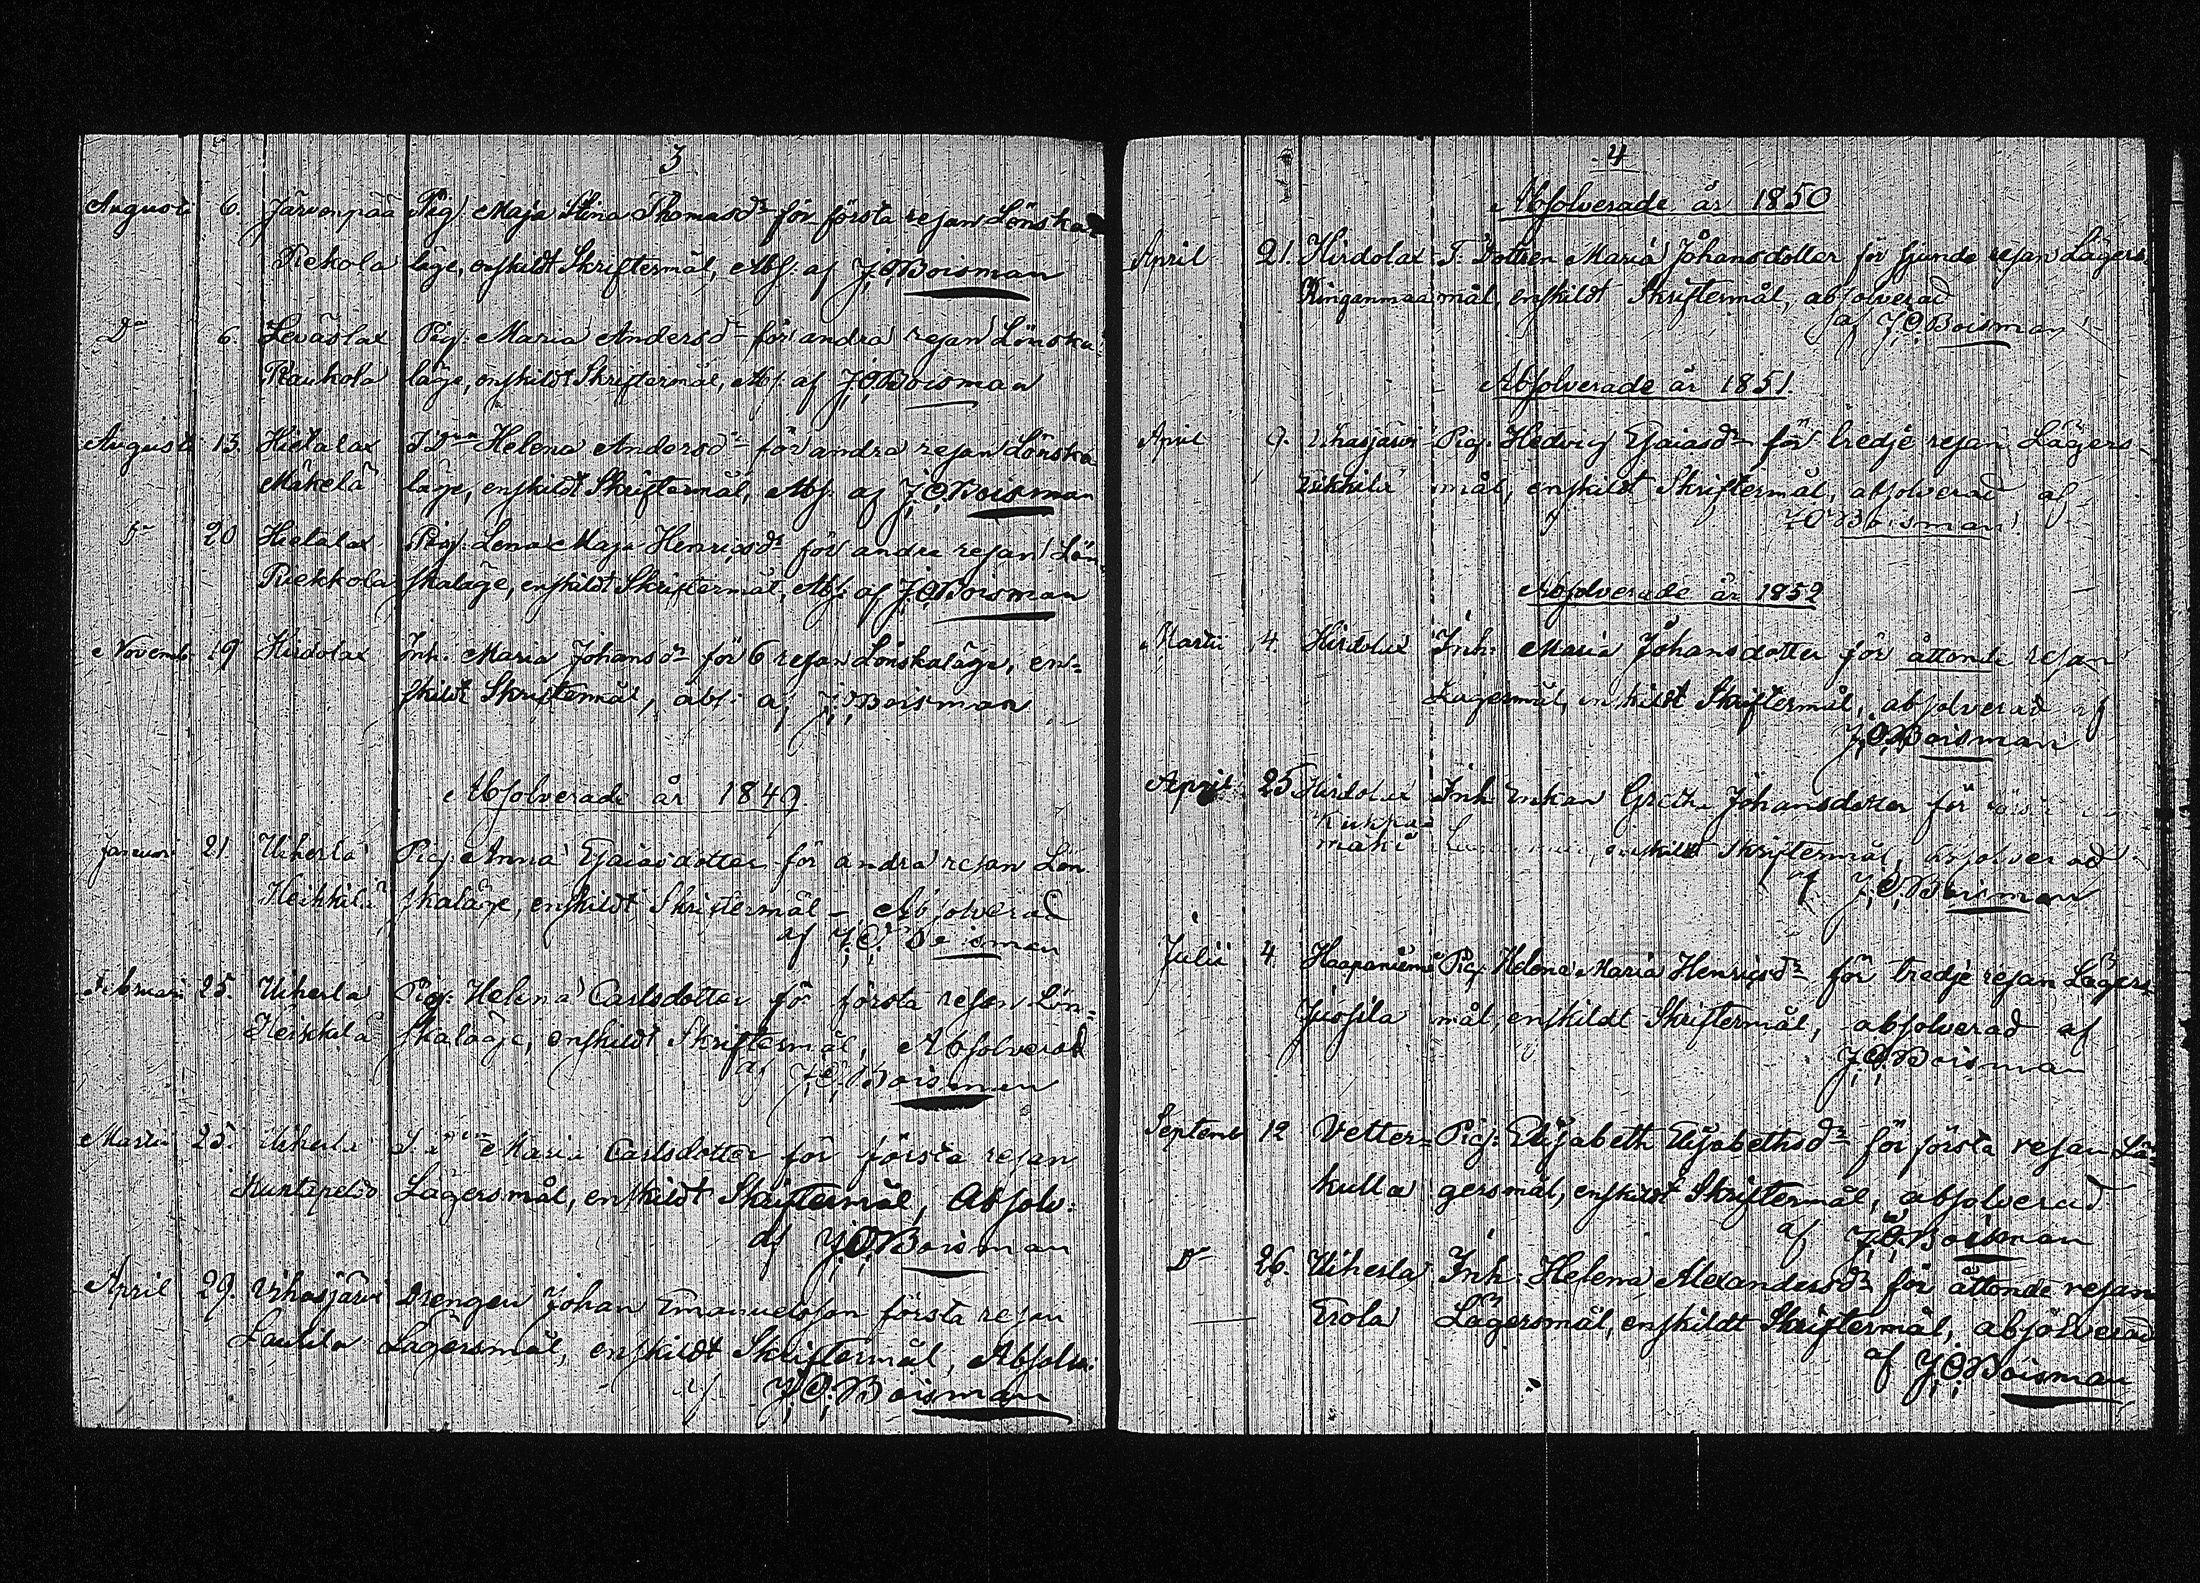 3
Augusti 6. Järvenpää Pig. Maja Stina Thomasdr för första resan Lönska
Piekola läge, enskildt Skriftermål, Abs. af J.O. Boisman
Do 6. Leväslax Pig. Maria Andersdr för andra resan Lönska
Raukola läge, enskildt Skriftermål, Abs. af J.O. Boisman
Augusti 13. Hietalax Helena Andersdr för andra resan Lönska
Mäkelä läge, enskildt Skriftermål, Abs. af J.O. Boisman
Do 20 Hietalax Pig. Lena Maja Henricsdr för andra resan Lön-
Piekkola skaläge, enskildt Skriftermål, Abs. af J.O. Boisman
Novemb. 19 Hirdolax Inh. Maria Johansdr för 6 resan Lönskaläge, en-
skildt Skriftermål, abs. af J.O. Boisman
Absolverade år 1849.
Januari 21. Uiherla Pig. Anna Esaiasdotter för andra resan Lön
Heikkilä skaläge, enskildt Skriftermål – Absolverad
af J.O. Boisman
Februari 25. Uiherla Pig. Helena Carlsdotter för första resan Lön-
Heikkilä skaläge, enskildt Skriftermål, Absolverad
af J.O. Boisman
Martii 25. Uiherla Maria Carlsdotter för första resan
Lägersmål, enskildt Skriftermål, Absolv:
af J.O. Boisman
April 29. Vihasjärvi Drengen Johan Emanuelsson första resan
Laulila Lägersmål, enskildt Skriftermål, Absolv:
af J.O. Boisman
4
Absolverade år 1850
April 21. Hirdolax T. Dottren Maria Johansdotter för sjunde resan Lägers
Ringanmaa mål, enskildt Skriftermål, absolverad
af J.O. Boisman
Absolverade år 1851
April 9. Vihasjärvi Pig. Hedvig Esaiasdr för tredje resan Lägers
mål, enskildt Skriftermål, absolverad af
J.O. Boisman
Absolverade år 1852
Martii 4. Hirdolax Inh. Maria Johansdotter för åttonde resan
Lägersmål, enskildt Skriftermål, absolverad af
J.O. Boisman
April 25 Hirdolax Inh. Enkan Greta Johansdotter för
Kukka-
mäki enskildt Skriftermål, absolverad
af J.O. Boisman
Julii 4. Haapaniemi Pig. Helena Maria Henricsdr för tredje resan Lägers
Juosila mål, enskildt Skriftermål, absolverad af
J.O. Boisman
Septemb 12 Vetter- Pig. Elisabeth Elisabethsdr för första resan Lä-
kulla gersmål, enskildt Skriftermål, absolverad
af J.O. Boisman
Do 26. Uiherla Inh. Helena Alexandersdr för åttonde resan
Erola Lägersmål, enskildt Skriftermål, absolverad
af J.O. Boisman